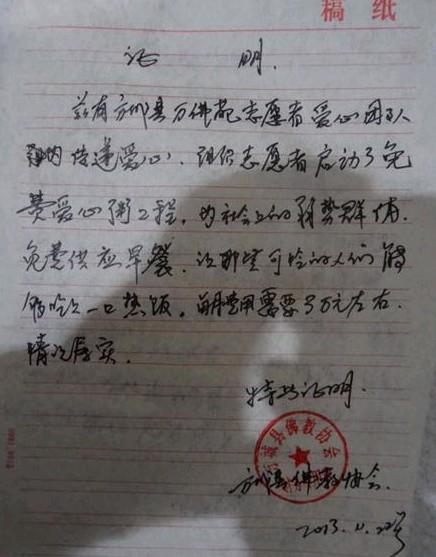 稿 纸
证 明.
兹有方城县万佛苑志愿者爱心团队
传递爱心、组织志愿者启动了免
费爱心粥工程，为社会上的弱势群体.
免费供应早餐.让那些可怜的人们能
够吃上一口热饭，每月费用需要3万元左右.
情况属实.
特此证明.
方城县佛教协会
方城县佛教协会.
2013.11.22号